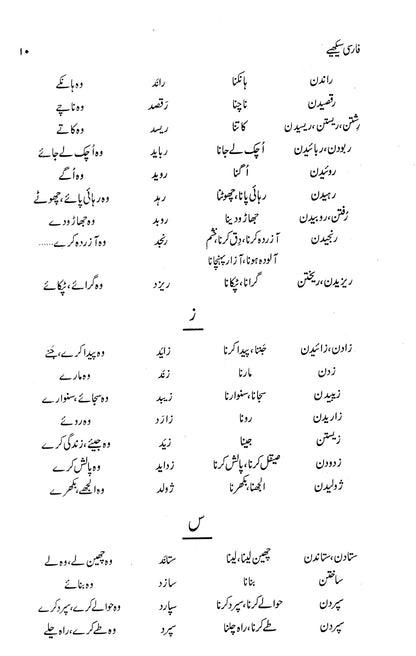 فارسی سیکھیے ۱۰
راندن ہانکنا راند وہ ہانکے
رقصیدن ناچنا رَقصد وہ ناچے
رِشتن، ریستن، ریسیدن کاتنا ریسد وہ کاتے
ربودن، ربائیدن اُچک لے جانا رباید وہ اُچک لے جائے
روئیدن اُگنا روید وہ اُگے
رہیدن رہائی پانا، چھوٹنا رہد وہ رہائی پائے، چھوٹے
رُفتن، روبیدن جھاڑو دینا روبد وہ جھاڑو دے
رنجیدن آزردہ کرنا، دِق کرنا، خشم رنجد وہ آزردہ کرے......
آلودہ ہونا، آزار پہنچانا
ریزیدن، ریختن گرانا، ٹپکانا ریزد وہ گرائے، ٹپکائے
ز
زادن، زائیدن جَننا، پیدا کرنا زائد وہ پیدا کرے، جَنے
زدن مارنا زَند وہ مارے
زیبیدن سجانا، سنوارنا زیبد وہ سجائے، سنوارے
زاریدن رونا زارَد وہ روئے
زیستن جینا زیَد وہ جیئے، زندگی کرے
زدودن صیقل کرنا، پالش کرنا زداید وہ پالش کرے
ژولیدن الجھنا، بکھرنا ژولد وہ الجھے، بکھرے
س
ستادن، ستاندن چھین لینا، لینا ستاند وہ چھین لے، وہ لے
ساختن بنانا سازد وہ بنائے
سپردن حوالے کرنا، سپرد کرنا سپارد وہ حوالے کرے، سپرد کرے
سپردن طے کرنا، راہ چلنا سپرد وہ طے کرے، راہ چلے